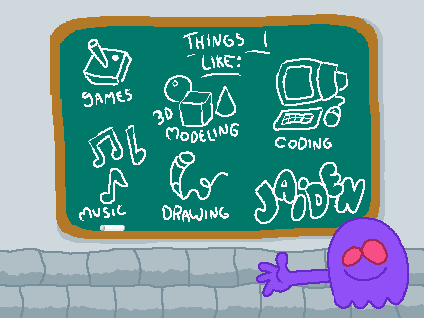 THINGS I
LIKE:
GAMES
3D
MODELING
CODING
MUSIC
DRAWING
JAIDEN